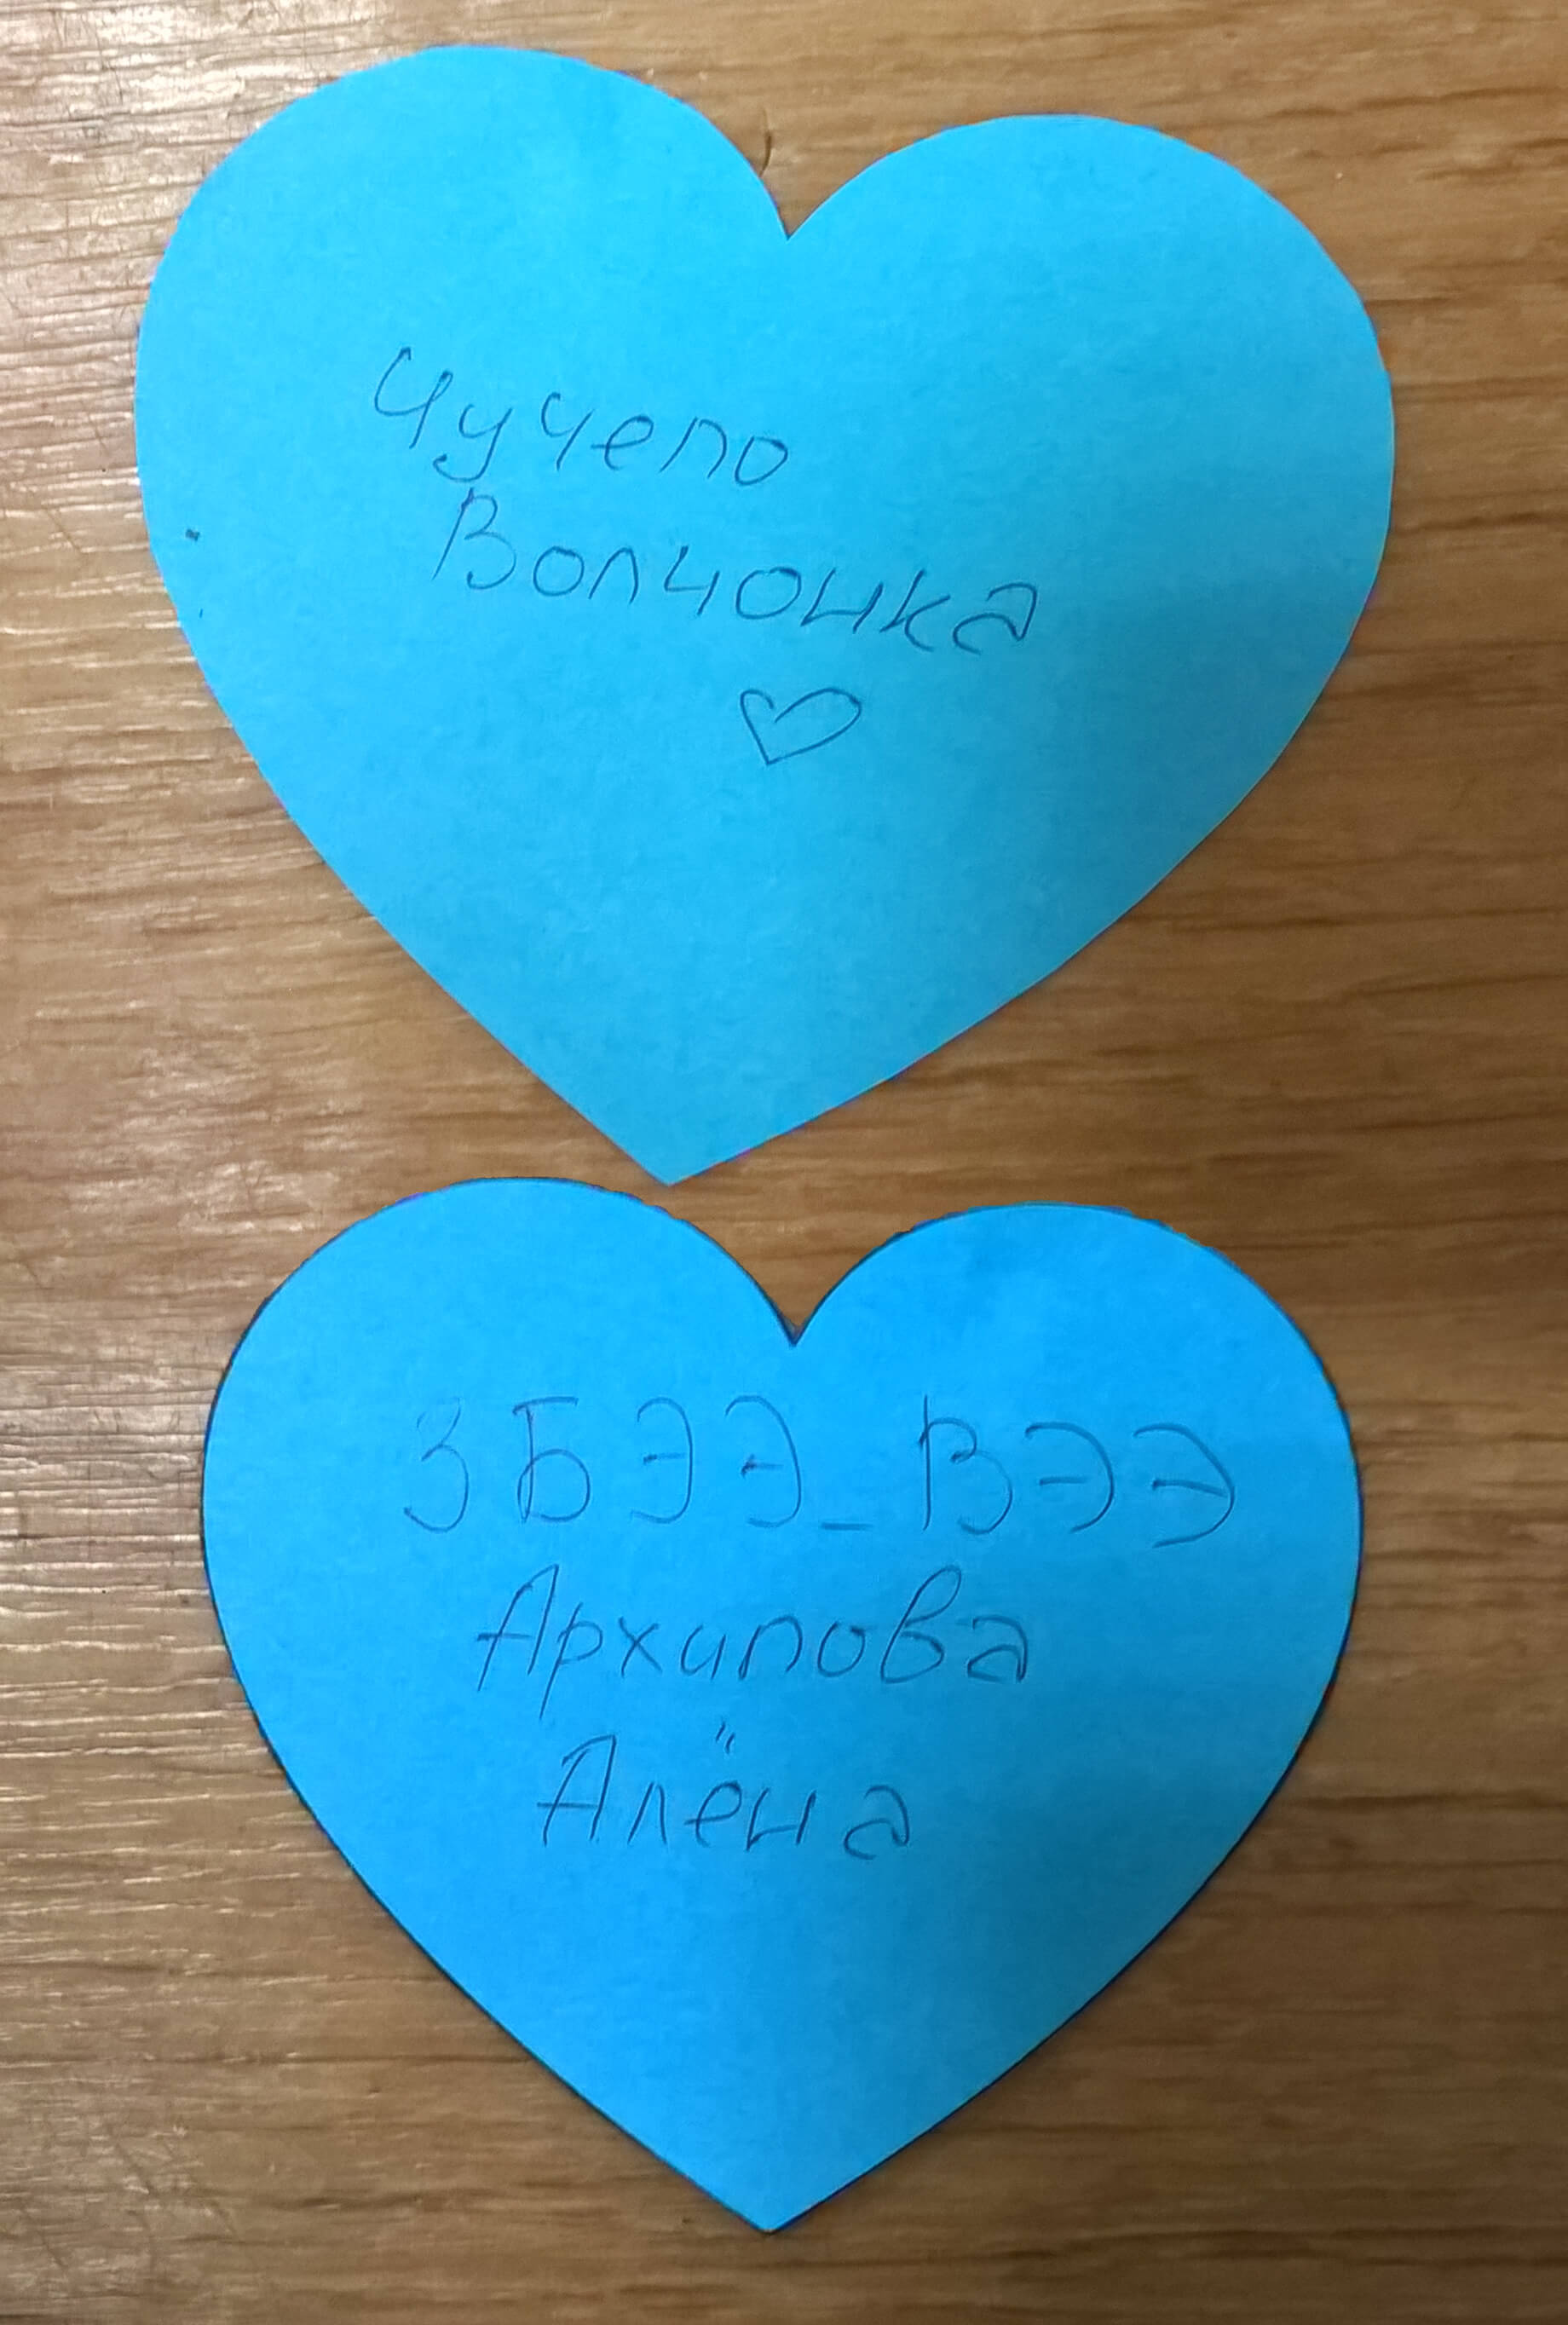 Чучело
Волчонка
ЗБЭЭ_ВЭЭ
Архипова
Алёна